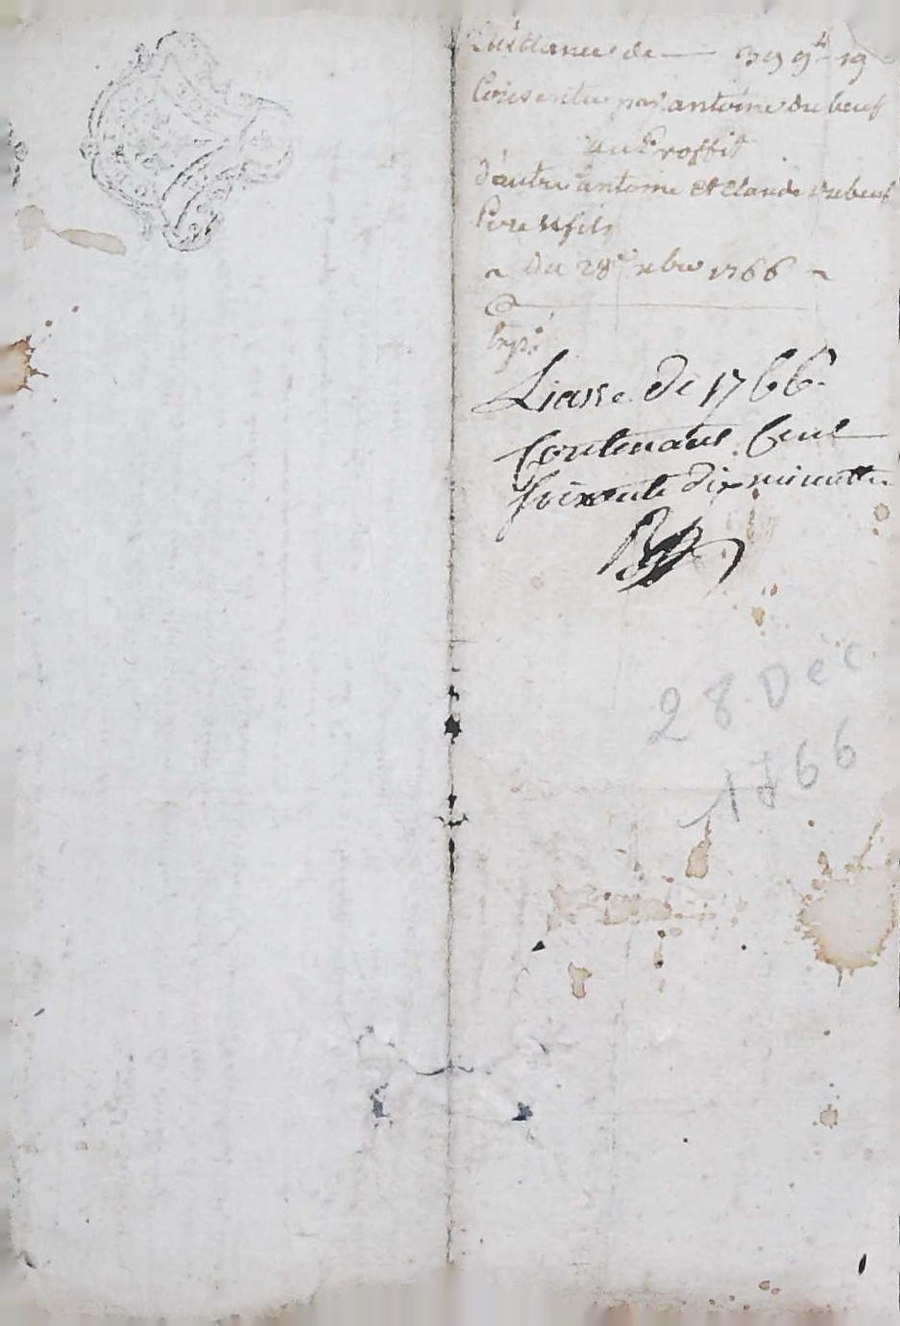 Quittance de — 399 lt 19
Consentie par antoine dubeuf
au Proffit
d'autre antoine et Claude dubeuf
Pere et fils
Du 28e xbre 1766
Exp.
Liasse de 1766
Contenant Cent
soixante dix minuttes
28 Déc
1766